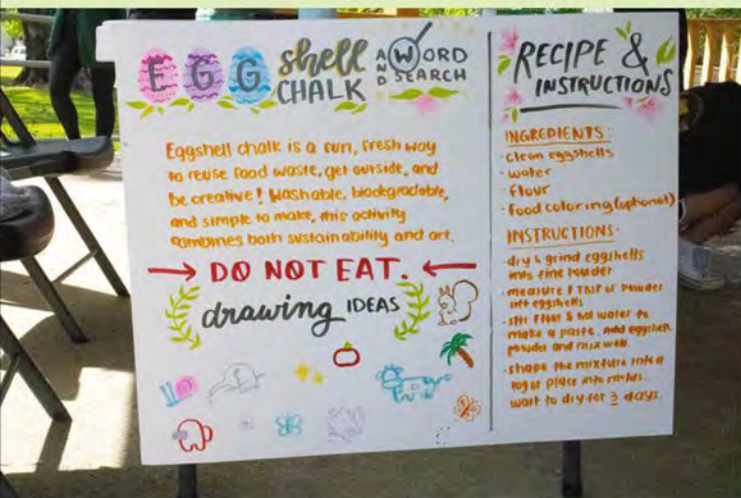 EGG shell AND WORD
CHALK SEARCH
Eggshell chalk is a fun, fresh way
to reuse food waste, get outside, and
be creative! Washable, biodegradable,
and simple to make, this activity
combines both sustainability and art.
→ DO NOT EAT. ←
drawing IDEAS
RECIPE &
INSTRUCTIONS
INGREDIENTS:
· clean eggshells
· water
· flour
· food coloring (optional)
INSTRUCTIONS:
· dry & grind eggshells
into fine powder
· measure 1 TBSP of powder
eggshells
· stir flour & hot water to
make a paste. Add eggshell
powder and mix well.
· shape the mixture into a
log or place into molds.
wait to dry for 3 days.